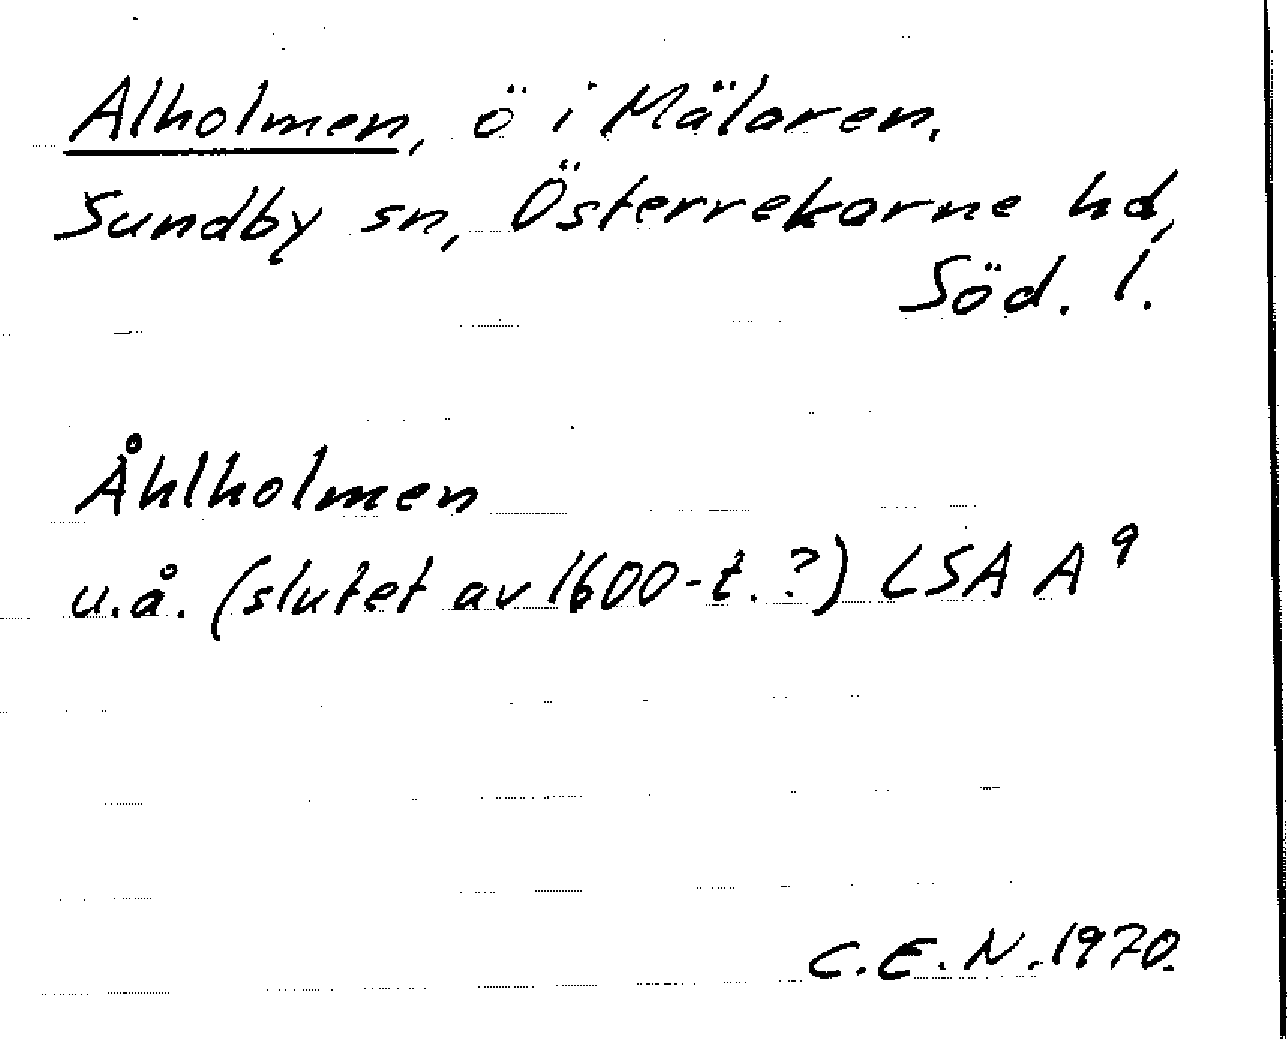 Alholmen, ö i Mälaren,
Sundby sn, Österrekarne hd,
Söd. l.
Åhlholmen
u.å. (slutet av 1600-t.?) LSA A⁹
C.E.N. 1970.